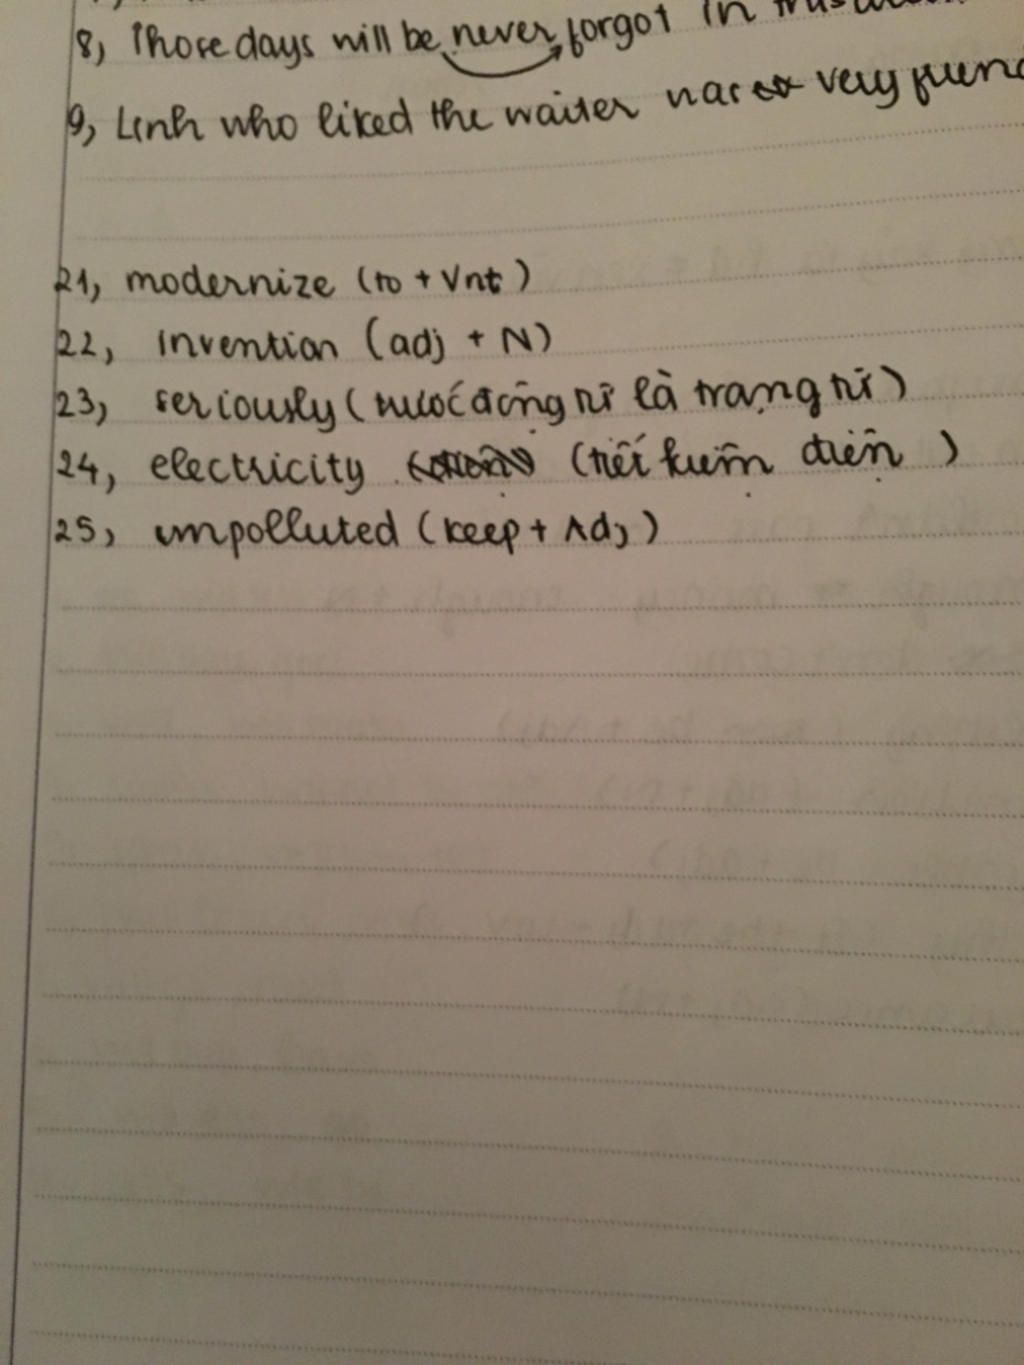 8, Those days will be never forgot in
9, Linh who liked the waiter was very
21, modernize (to + Vnt)
22, invention (adj + N)
23, seriously (trước động từ là trạng từ)
24, electricity (tiết kiệm điện)
25, unpolluted (keep + Adj)